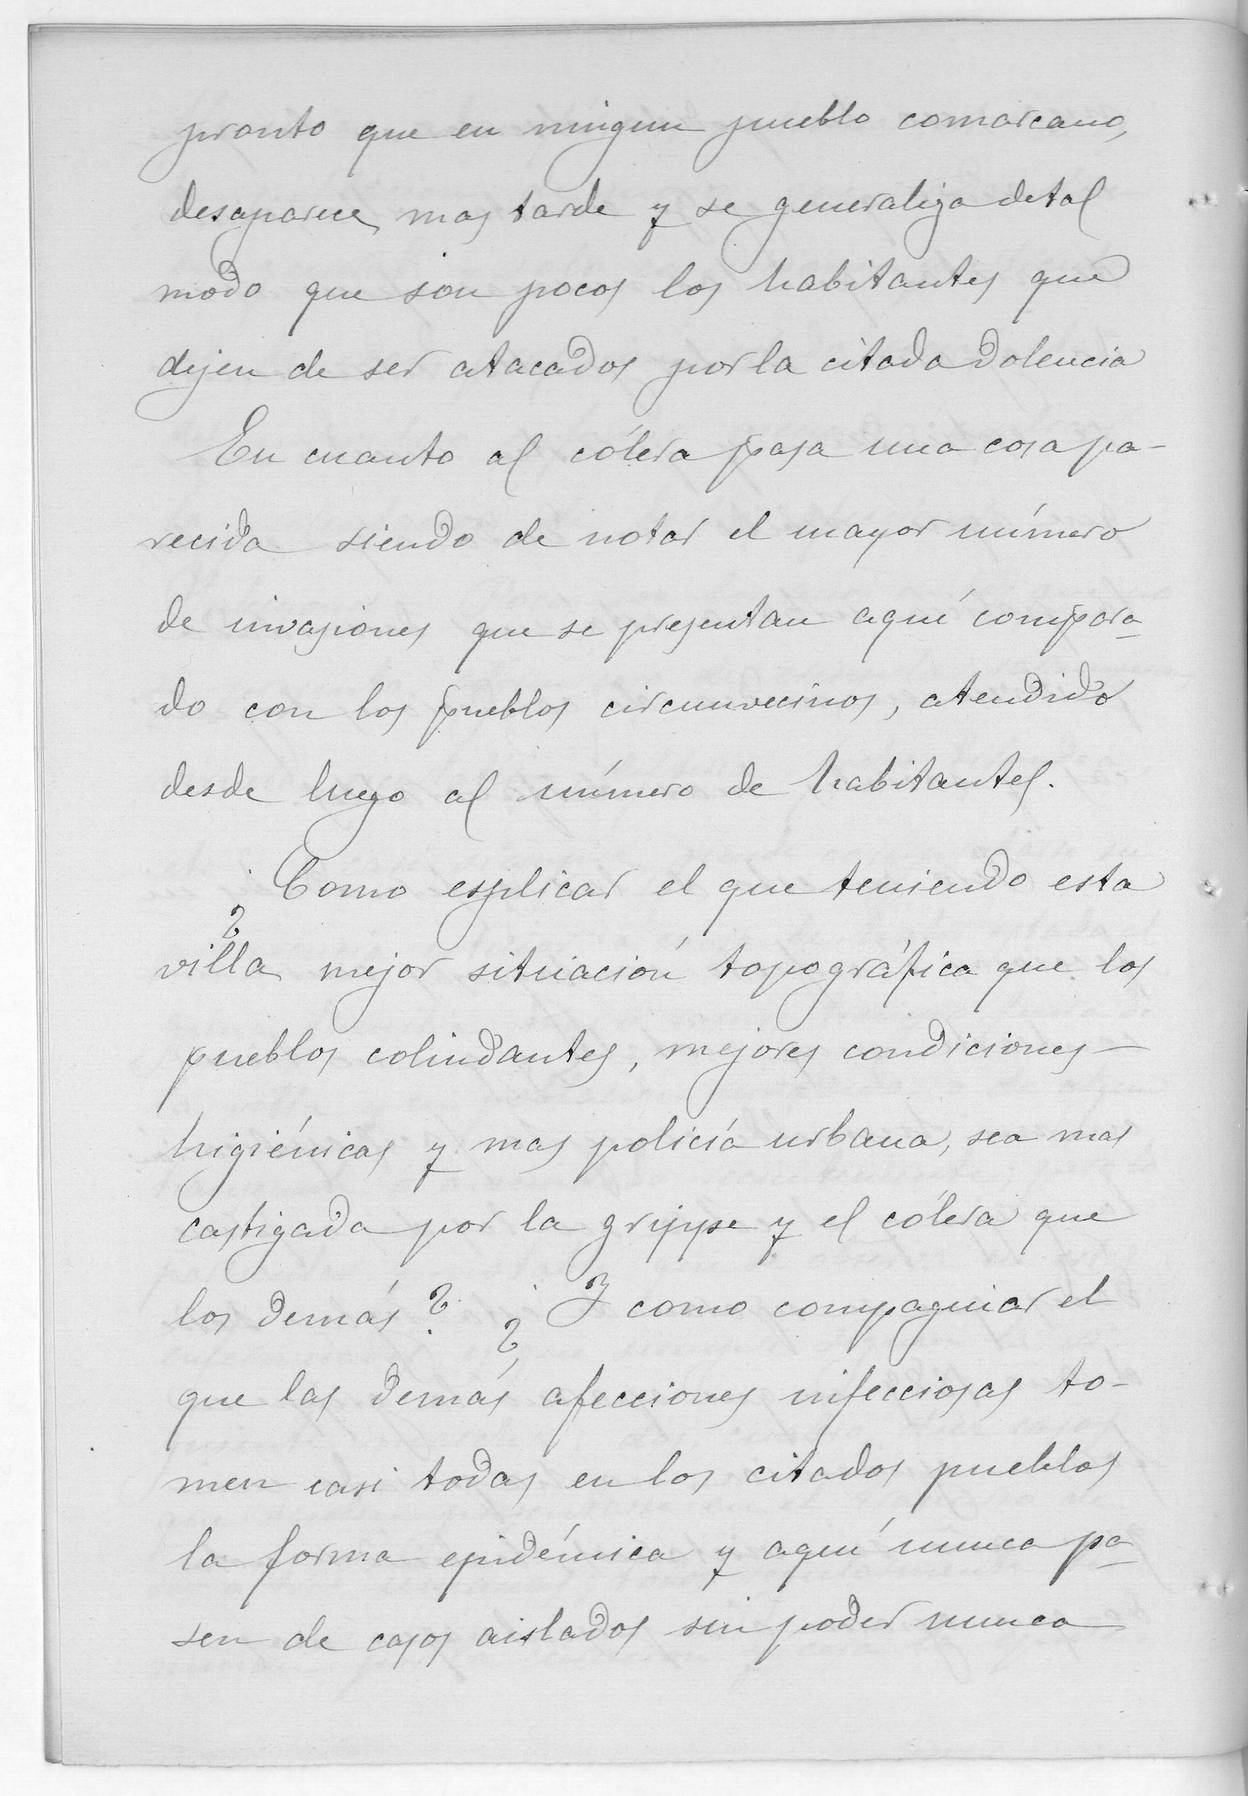 pronto que en ningun pueblo comarcano,
desaparece mas tarde y se generaliza de tal
modo que son pocos los habitantes que
dejen de ser atacados por la citada dolencia
En cuanto al cólera pasa una cosa pa-
recida siendo de notar el mayor número
de invasiones que se presentan aquí compara-
do con los pueblos circunvecinos, atendido
desde luego al número de habitantes.
¿Como esplicar el que teniendo esta
villa mejor situación topográfica que los
pueblos colindantes, mejores condiciones
higiénicas y mas policía urbana, sea mas
castigada por la grippe y el cólera que
los demás? ¿Y como compaginar el
que las demás afecciones infecciosas to-
men casi todas en los citados pueblos
la forma epidémica y aquí nunca pa-
sen de casos aislados sin poder nunca